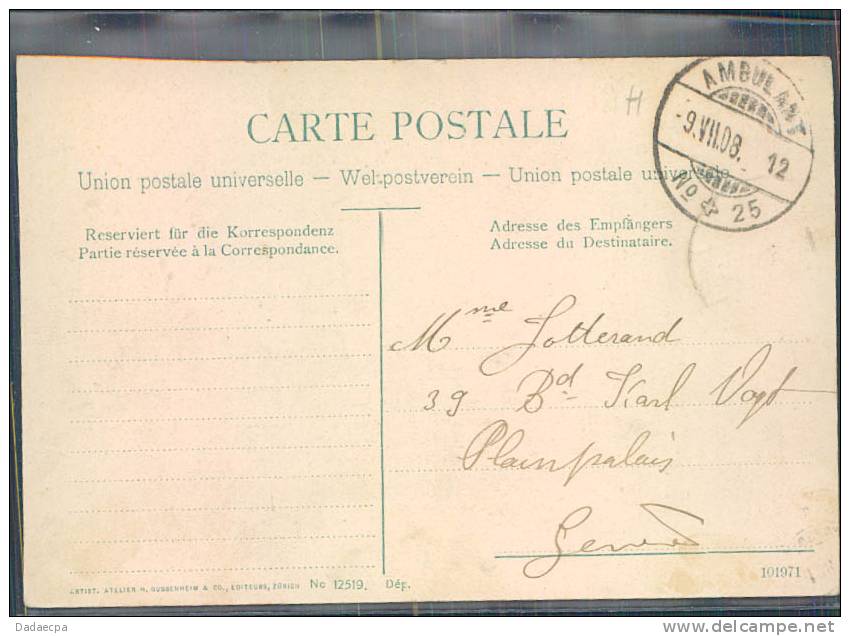 H
AMBULANT
-9.VII.08. 12
No 25
CARTE POSTALE
Union postale universelle — Weltpostverein — Union postale universelle
Reserviert für die Korrespondenz
Partie réservée à la Correspondance.
Adresse des Empfängers
Adresse du Destinataire.
Mme Jotterand
39 Bd Karl Vogt
Plainpalais
Genève
ARTIST. ATELIER H. GUGGENHEIM & CO., EDITEURS, ZÜRICH No 12519. Dép.
101971
Dadaecpa
www.delcampe.net